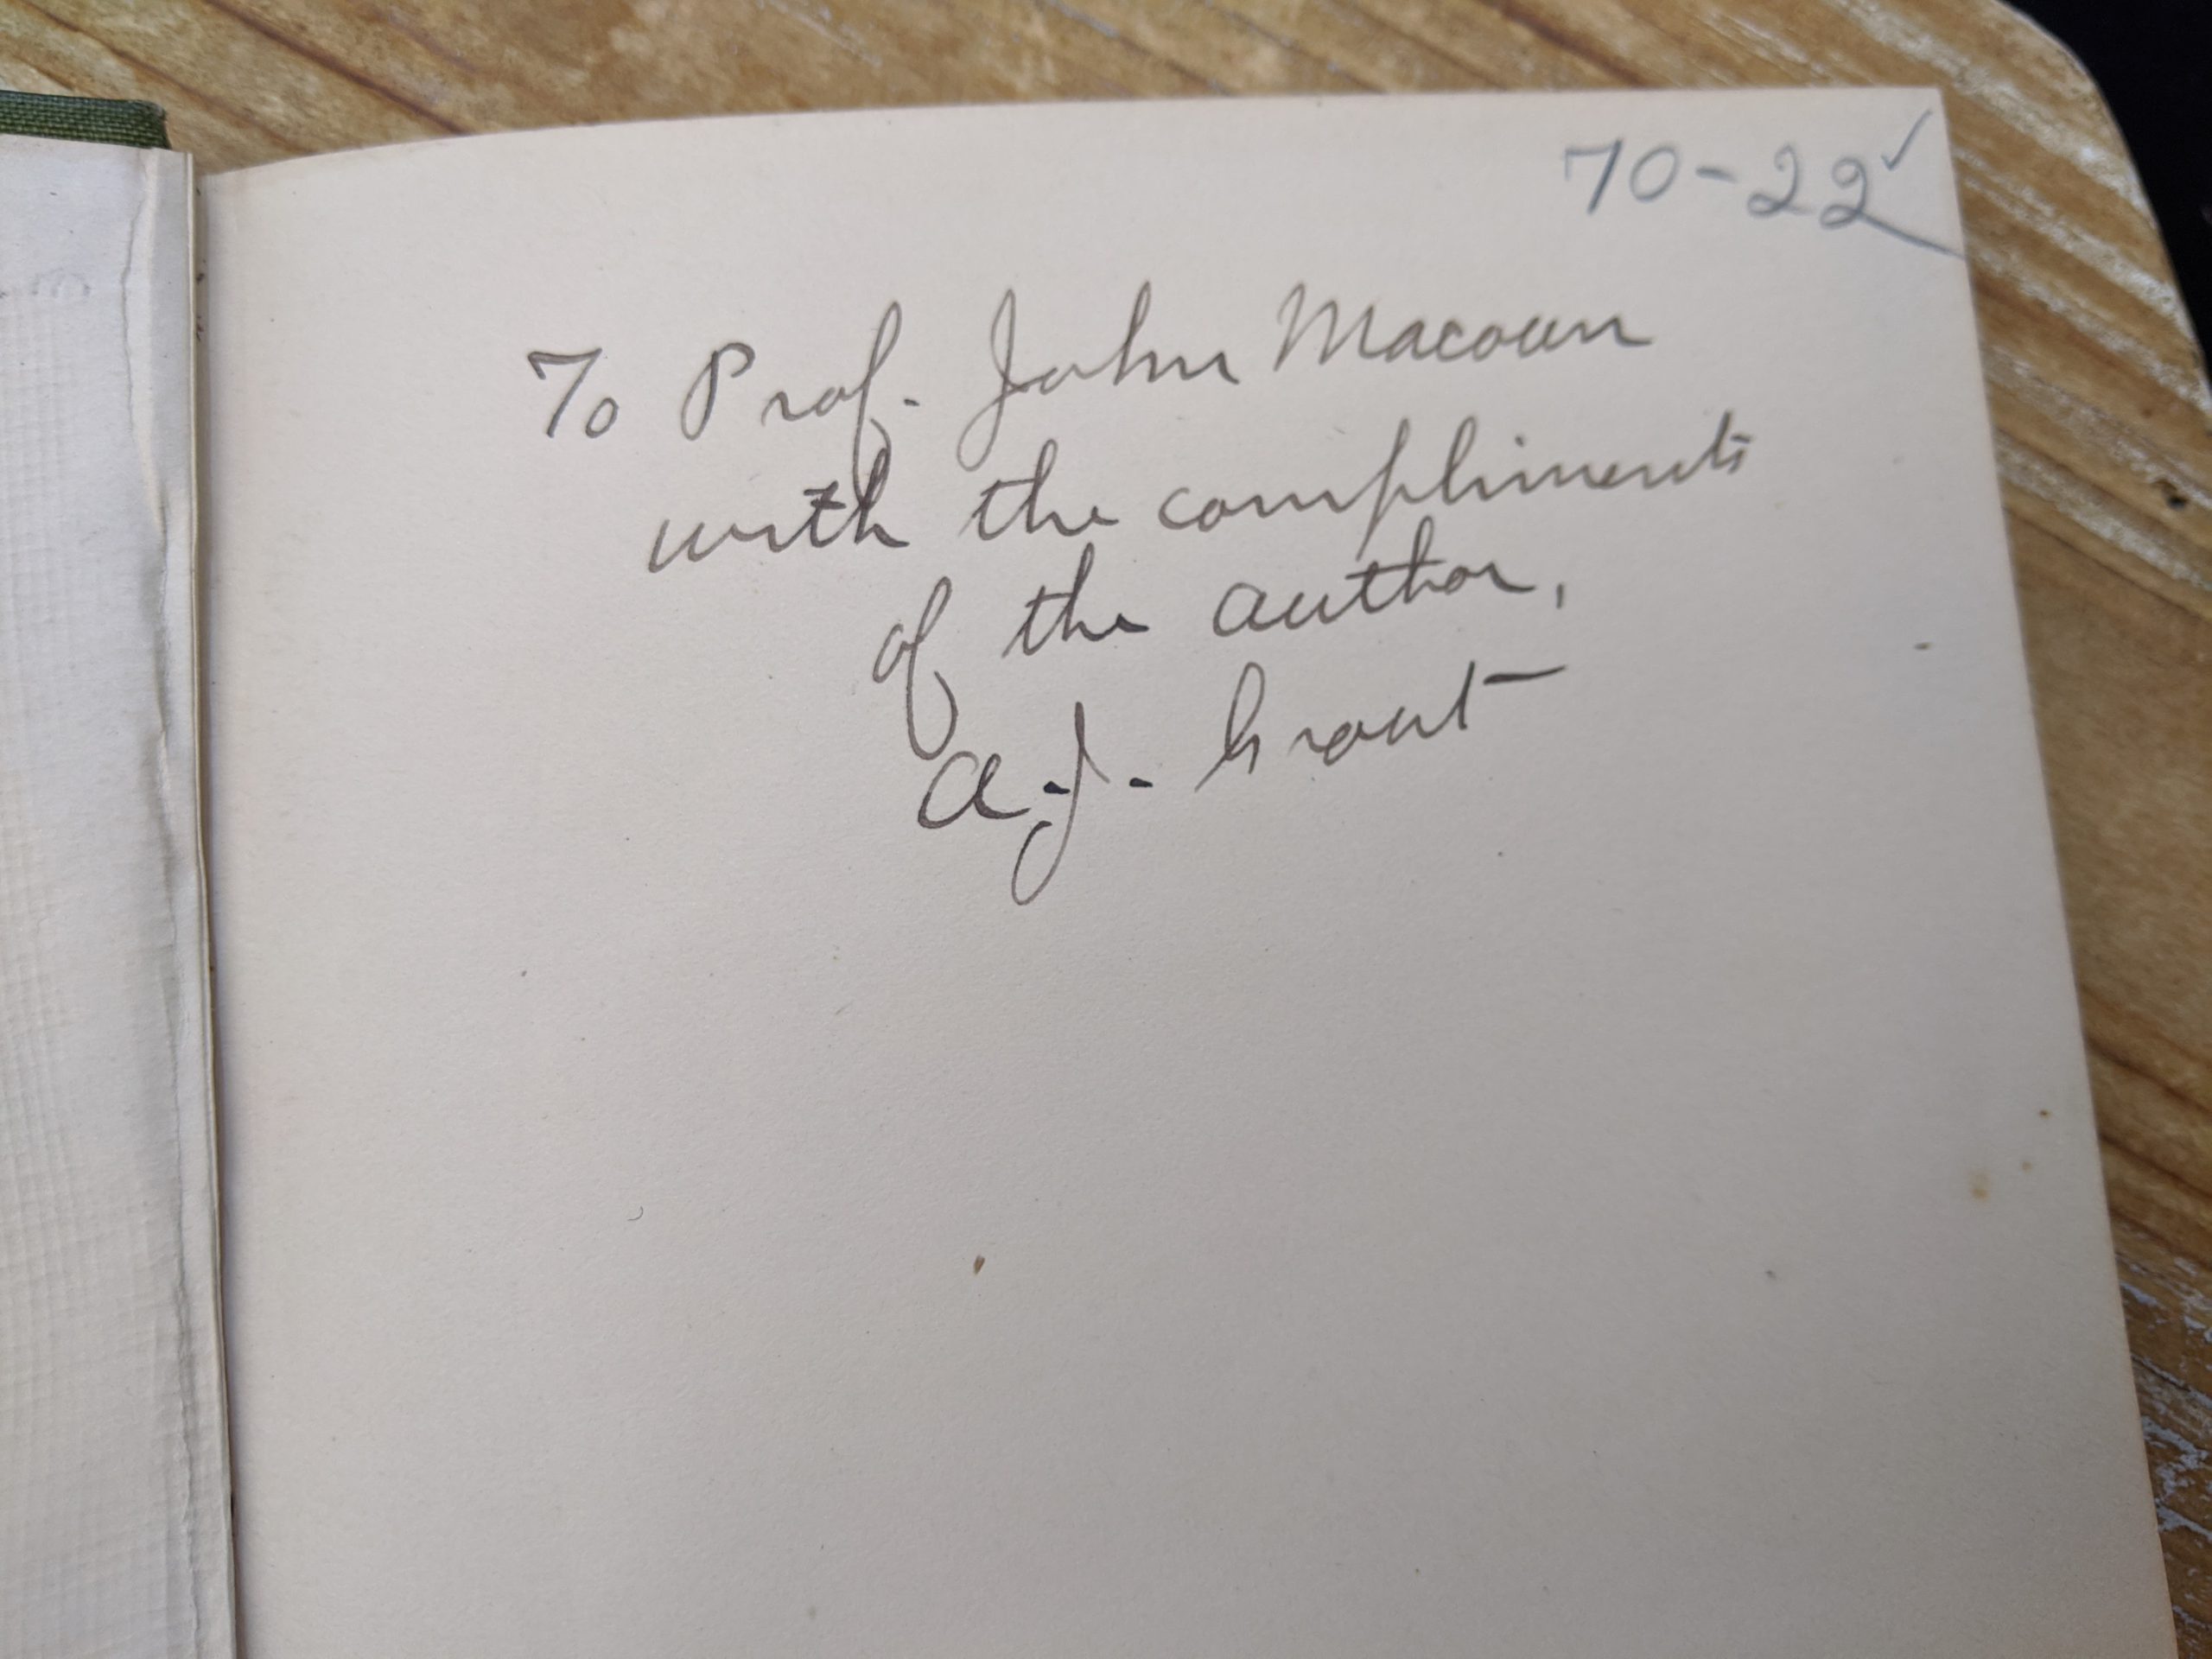 70-22✓
To Prof. John Macoun
with the compliments
of the author,
A. J. Grout